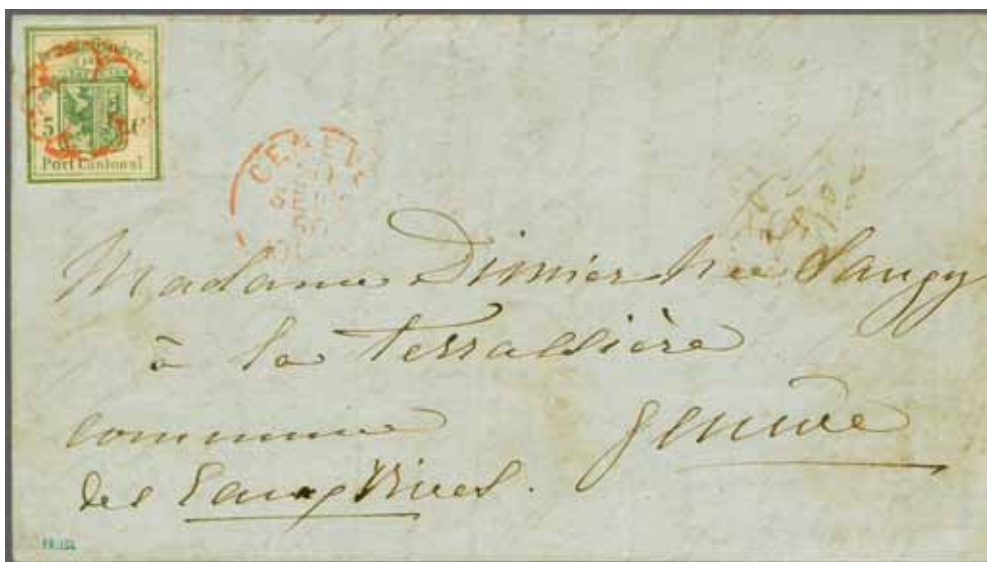 5 C
Port Cantonal
GENEV
Madame Dimier née Saugy
à la Terrassière
commune Genève
des Eaux Vives.